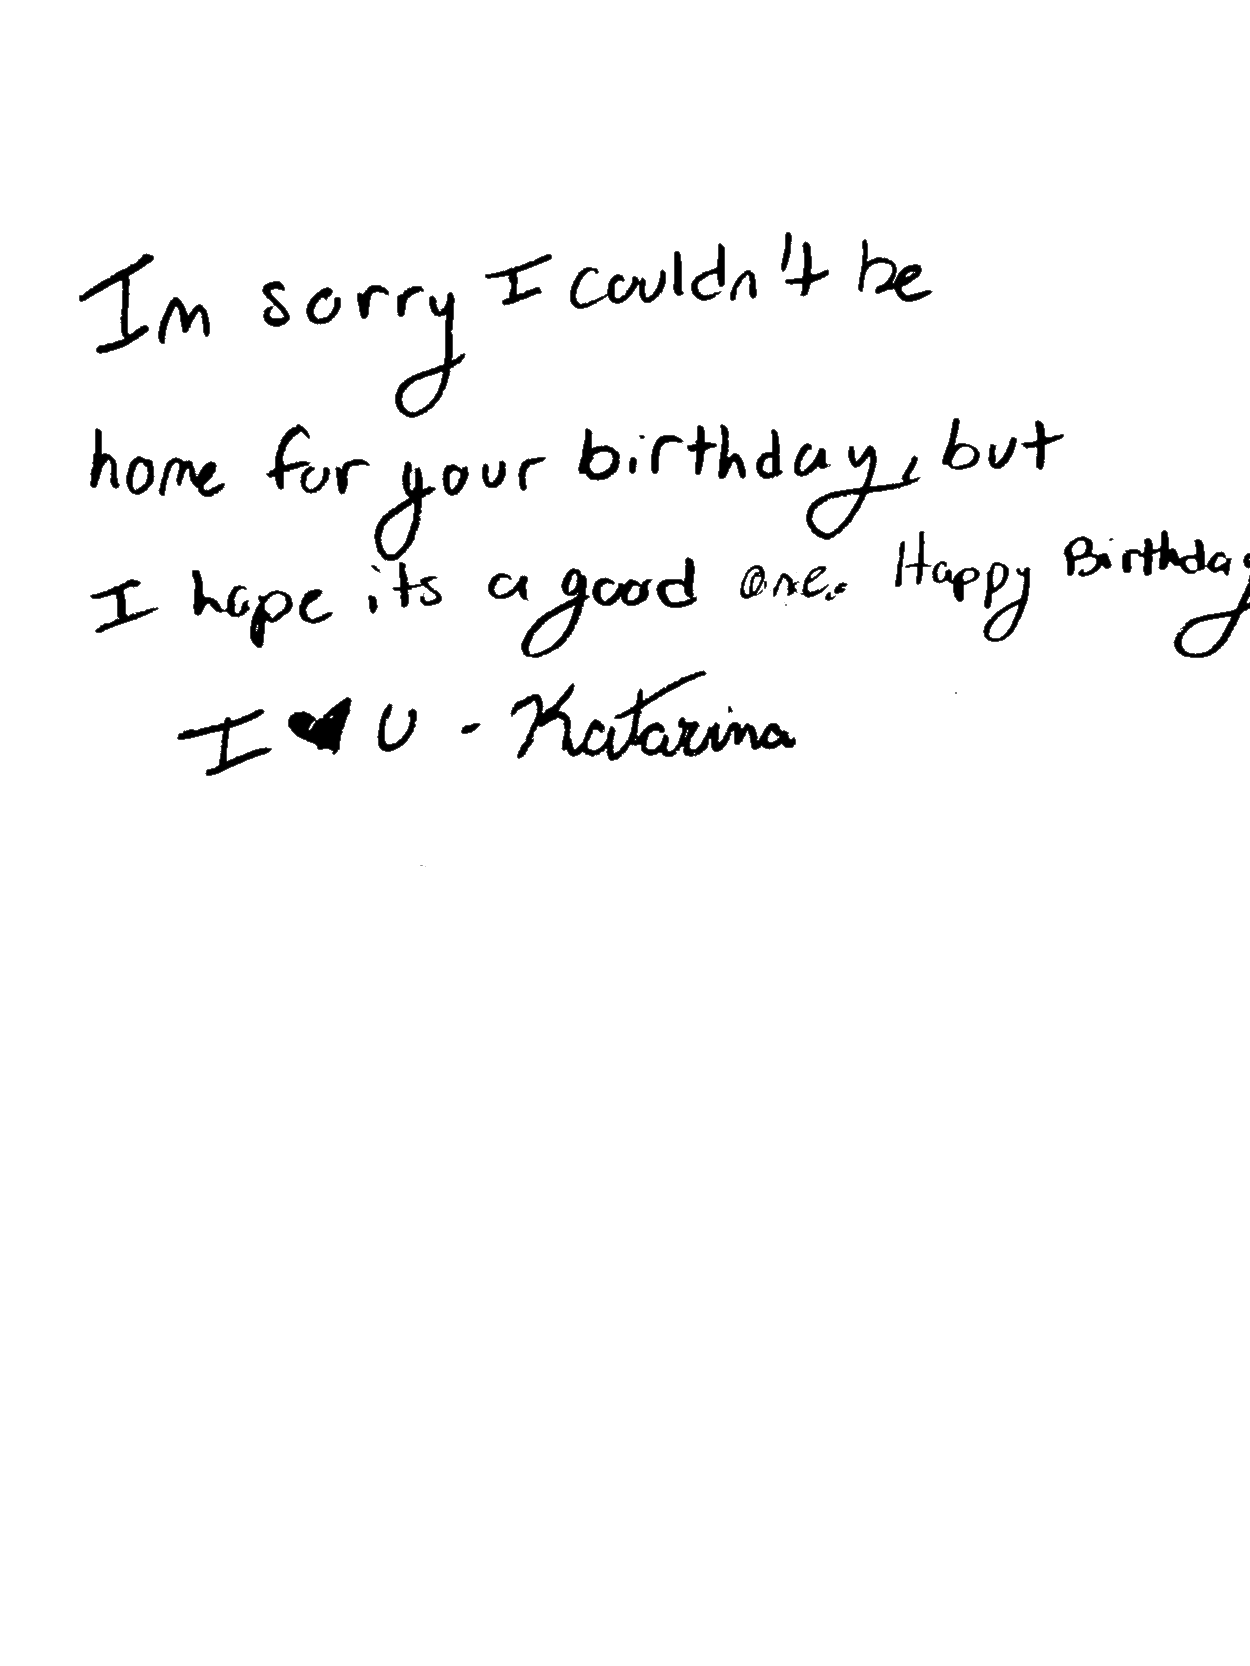 Im sorry I couldn't be
home for your birthday, but
I hope its a good one. Happy Birthday
I ♥ U - Katarina